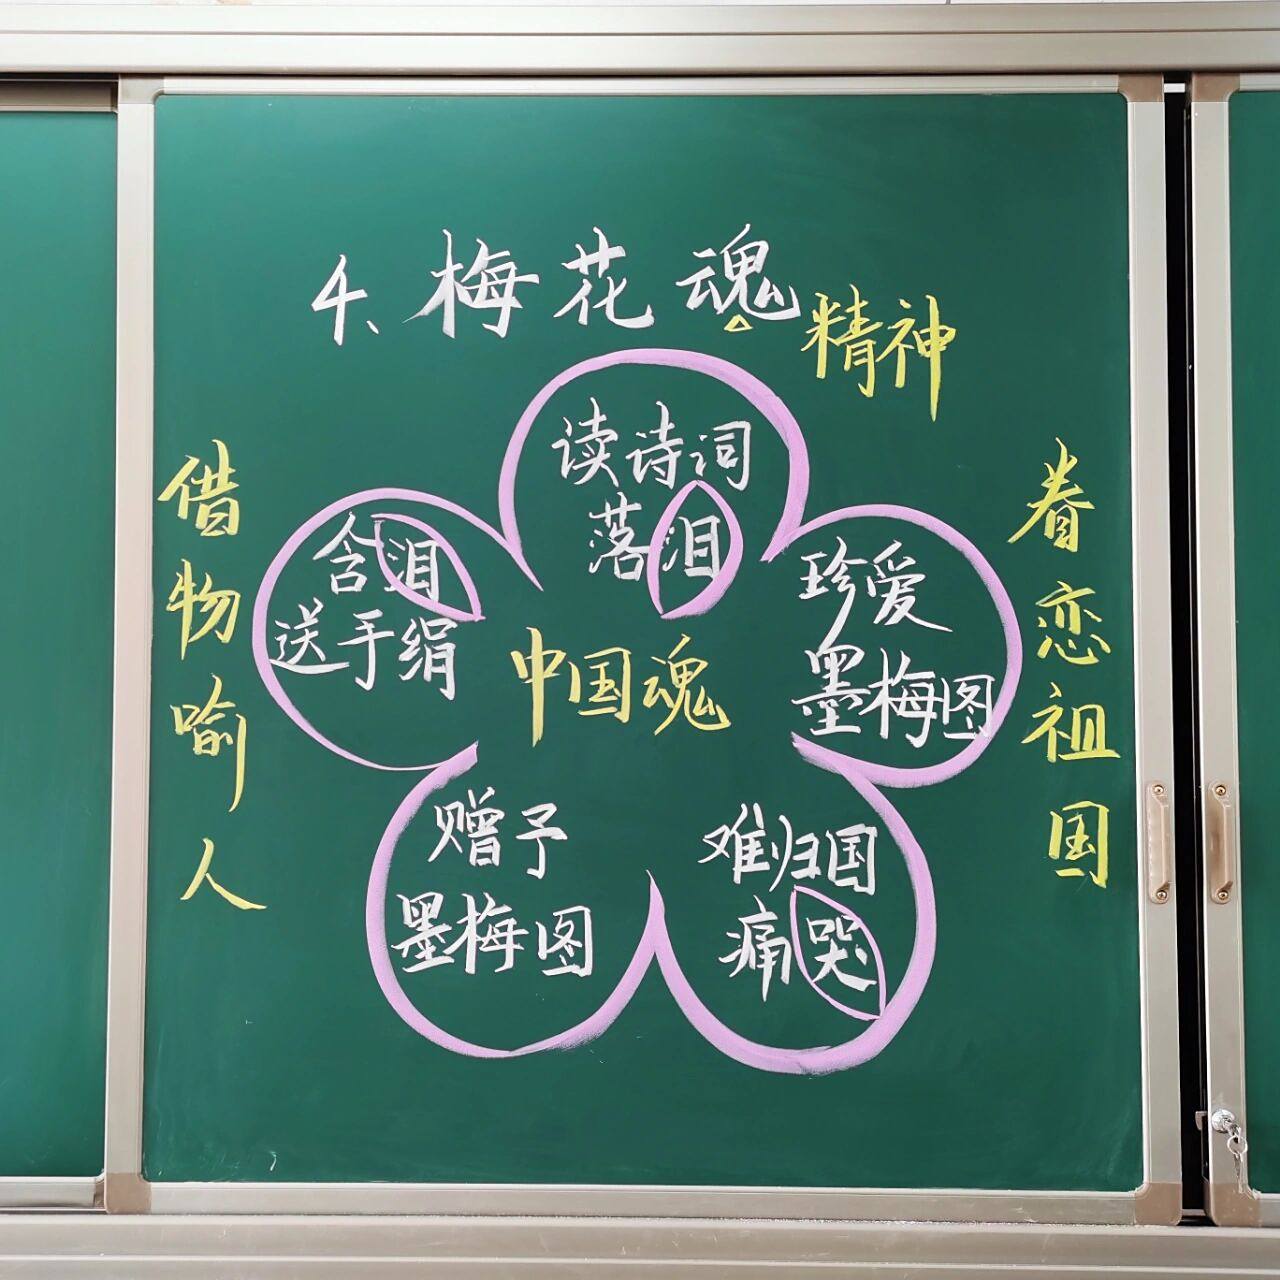 4、梅花魂
精神
读诗词
落泪
珍爱
墨梅图
难归国
痛哭
赠予
墨梅图
含泪
送手绢
中国魂
借物喻人
眷恋祖国